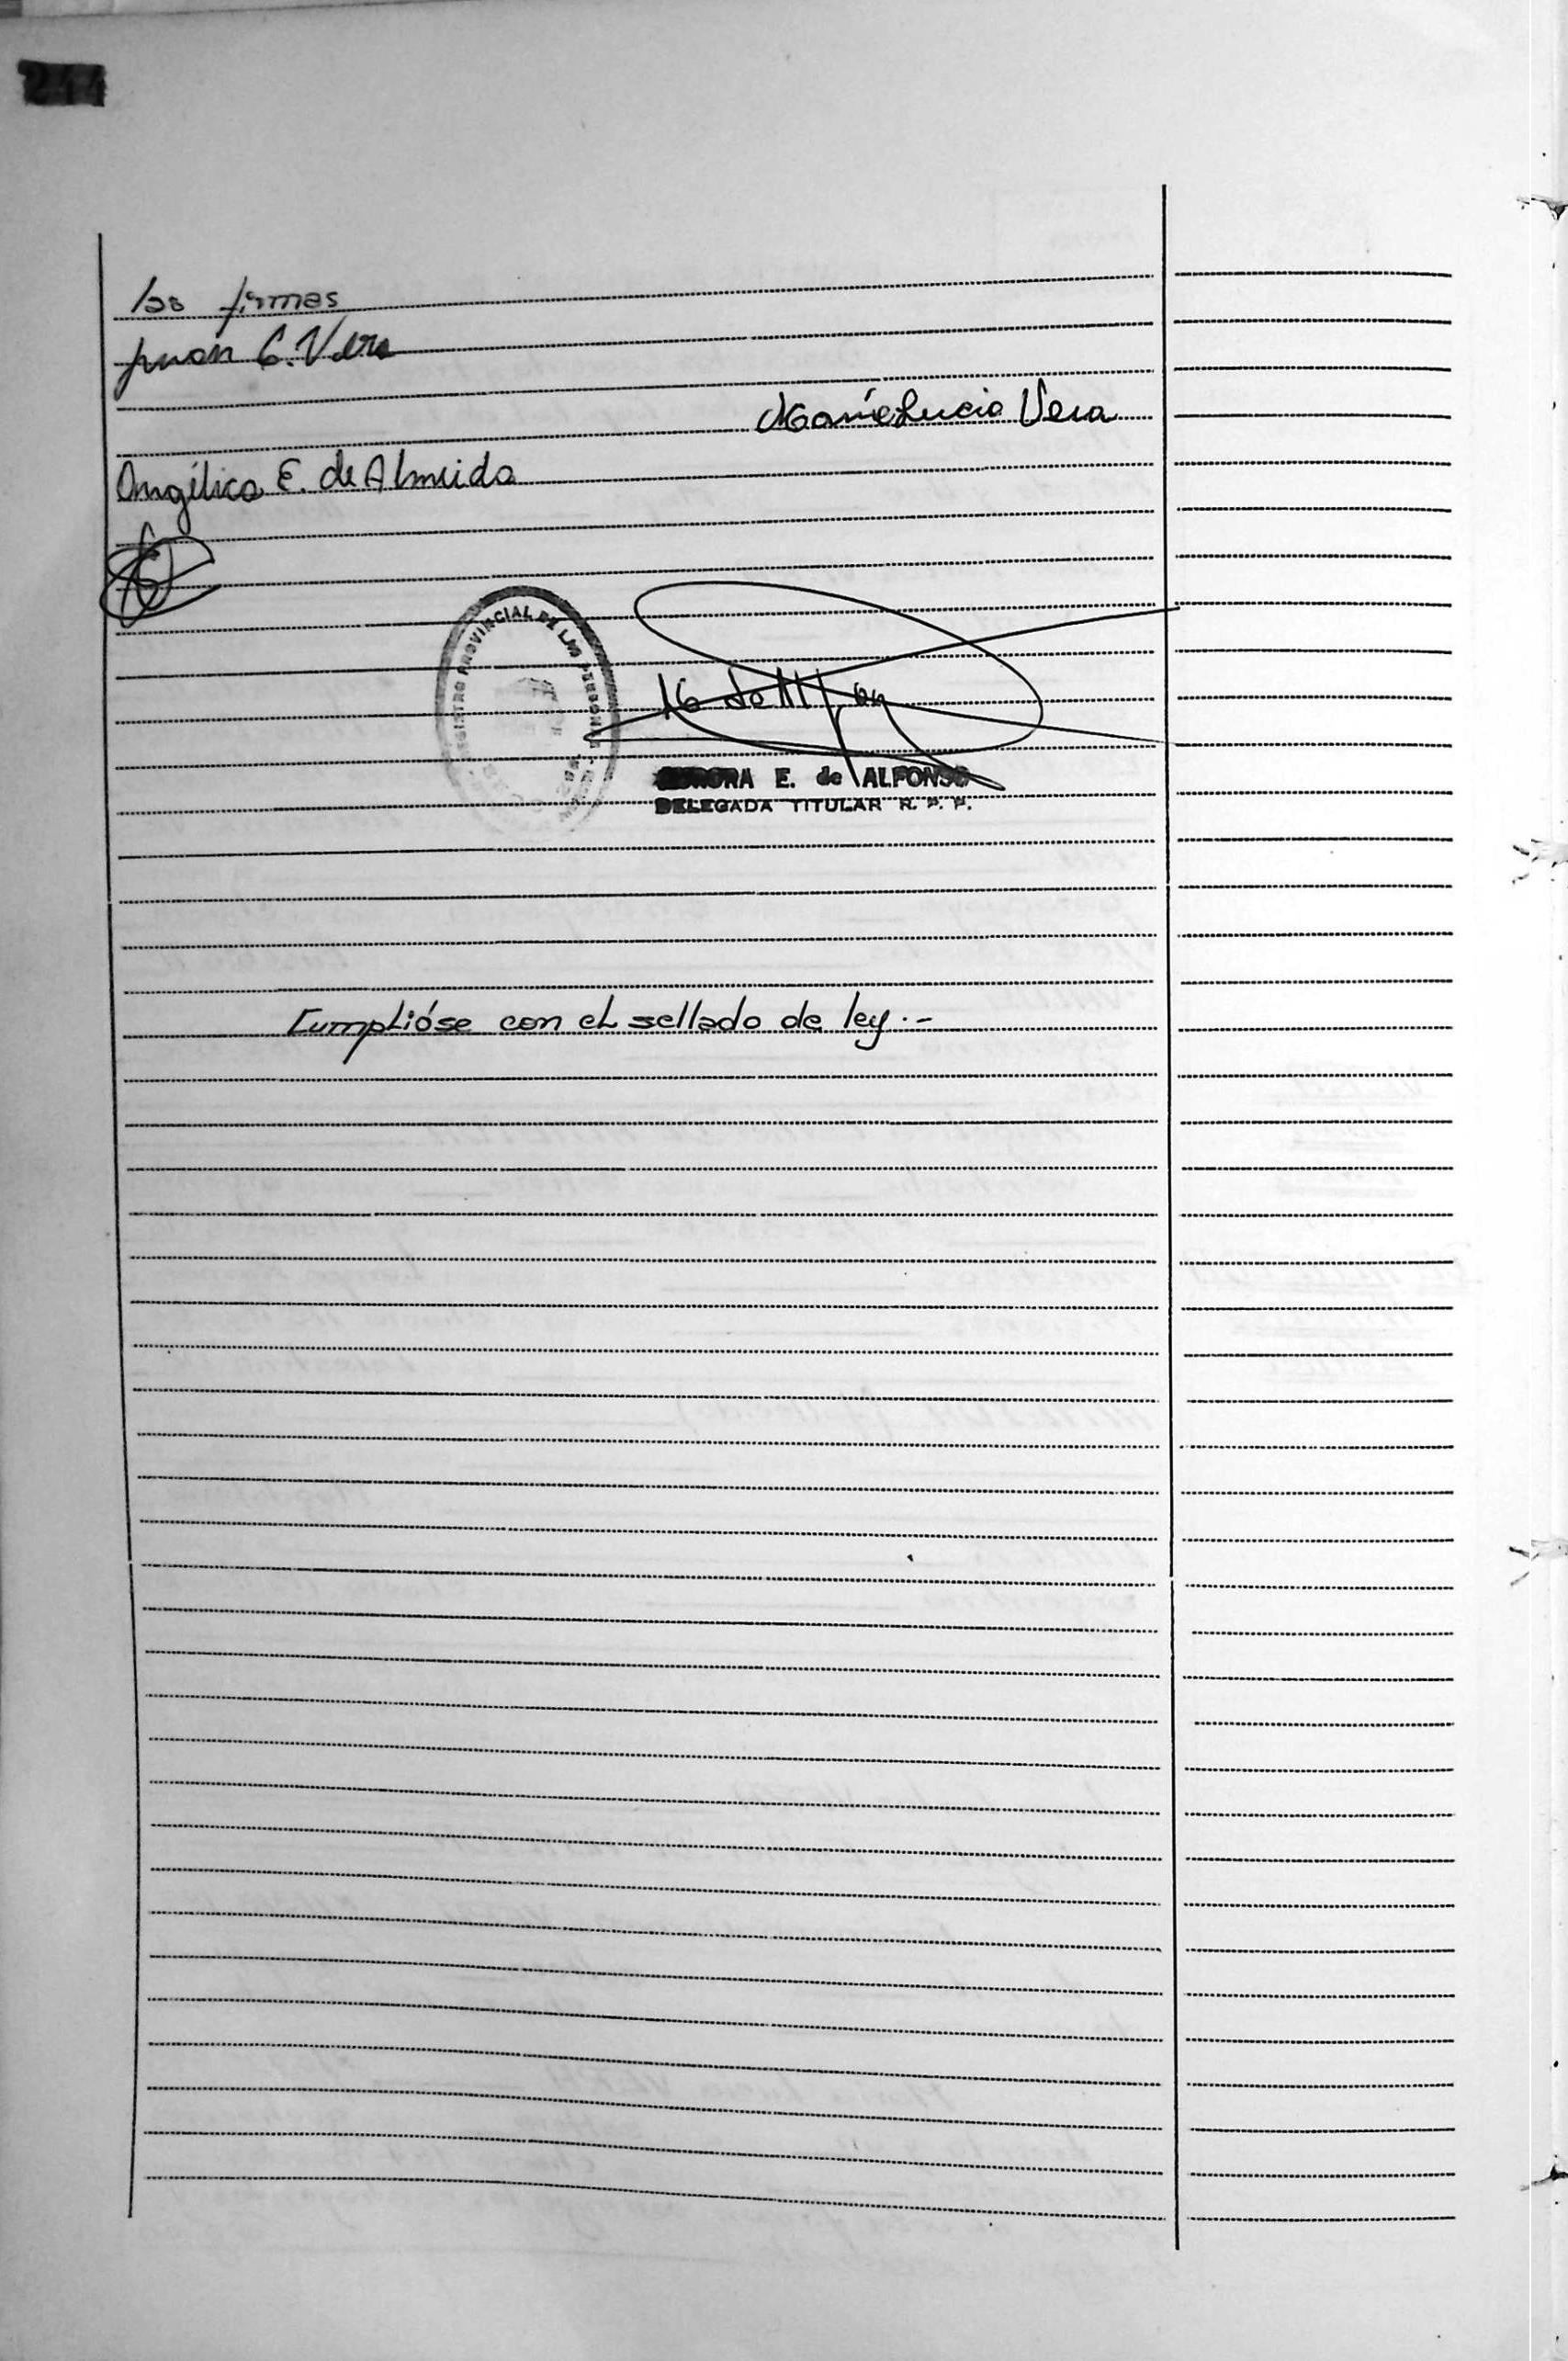 244
las firmas
Juan C. Vera
María Lucia Vera
Angélica E. de Almeida
REGISTRO PROVINCIAL DE LAS PERSONAS
E. de Alfon
AURORA E. de ALFONSO
DELEGADA TITULAR R. P. P.
Cumplióse con el sellado de ley.-